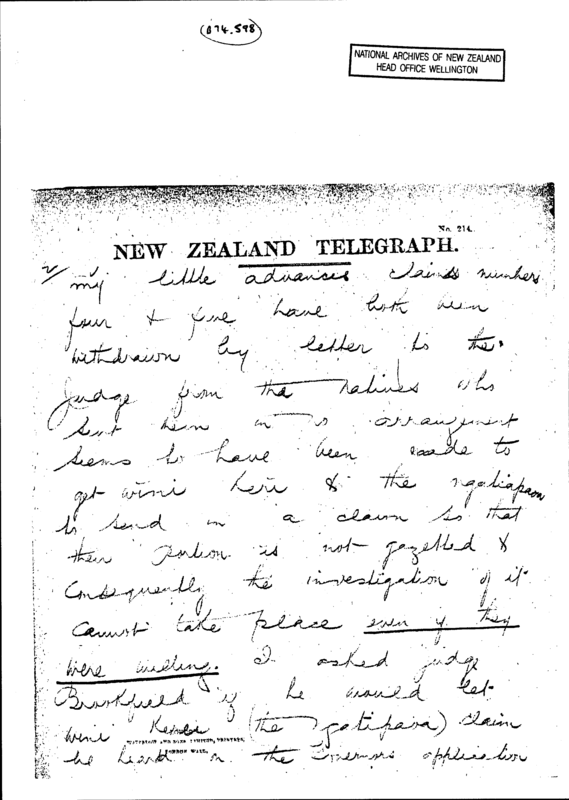 (074.598)
NATIONAL ARCHIVES OF NEW ZEALAND
HEAD OFFICE WELLINGTON
No. 214.
NEW ZEALAND TELEGRAPH.
my little advances claims numbers
four & five have both been
withdrawn by letter to the
Judge from the natives who
sent them in no arrangement
seems to have been made to
get wini here & the ngatiapaoa
to send in a claim so that
their portion is not gazetted &
consequently the investigation of it
cannot take place even if they
were willing. I asked judge
Brookfield if he would let
wini (the ngatipaoa) claim
WATERLOW AND SONS LIMITED, PRINTERS,
LONDON WALL.
be heard on the Governors application